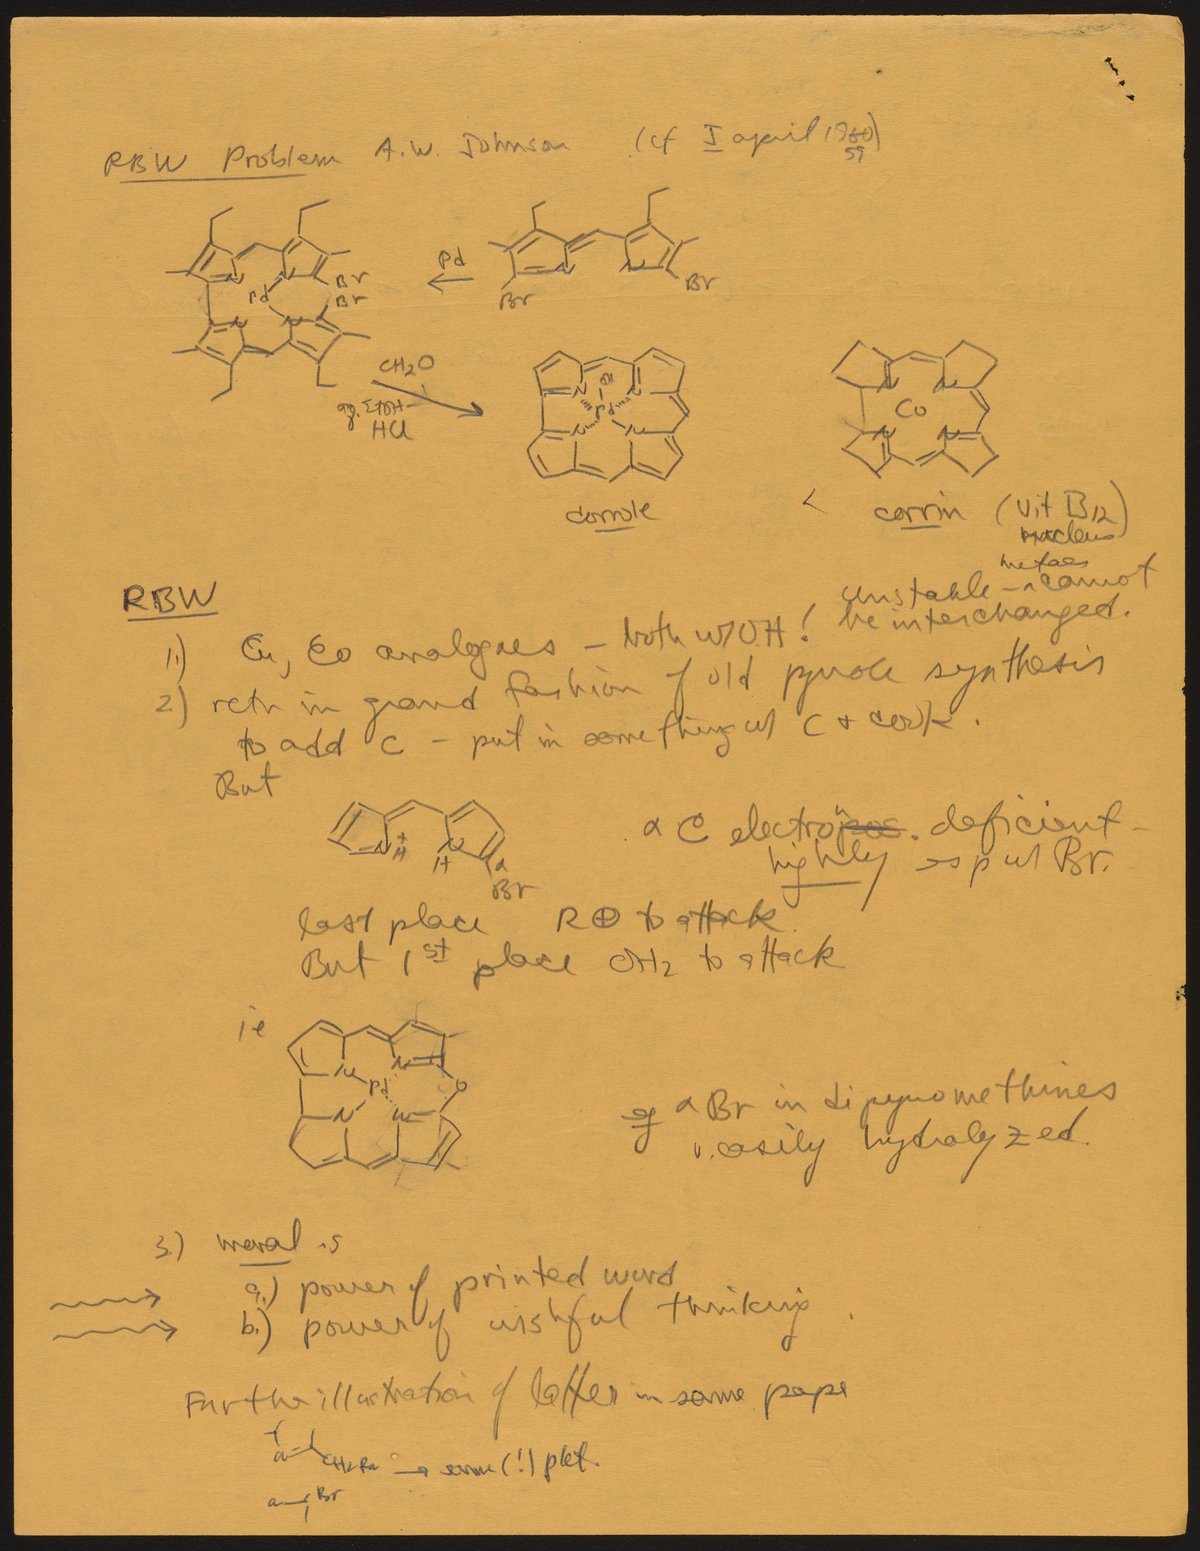 RBW Problem A.W. Johnson (cf I april 1960)
59
Pd
Br
Br
Pd
N N
N N
Br
Br
N N
CH2O
aq. EtOH
HCl
OH
N N
Pd
N N
corrole
N N
Co
N N
<
corrin (Vit B12)
nucleus
RBW
metals
unstable - cannot
be interchanged.
1.) Cu, Co analogues - both w/ OH!
2) rctn in grand fashion of old pyrrole synthesis
to add C - put in something w/ C + cook.
But
N + H
N H
α
Br
α C electropos. deficient -
highly esp w/ Br.
last place R⊕ to attack
But 1st place OH2 to attack
i.e
N N
Pd
O
N N
eg α Br in dipyrromethines
v. easily hydrolyzed.
3.) moral is
a.) power of printed word
b.) power of wishful thinking.
Further illustration of latter in same paper
CH2Br → same (!) pdt.
Br